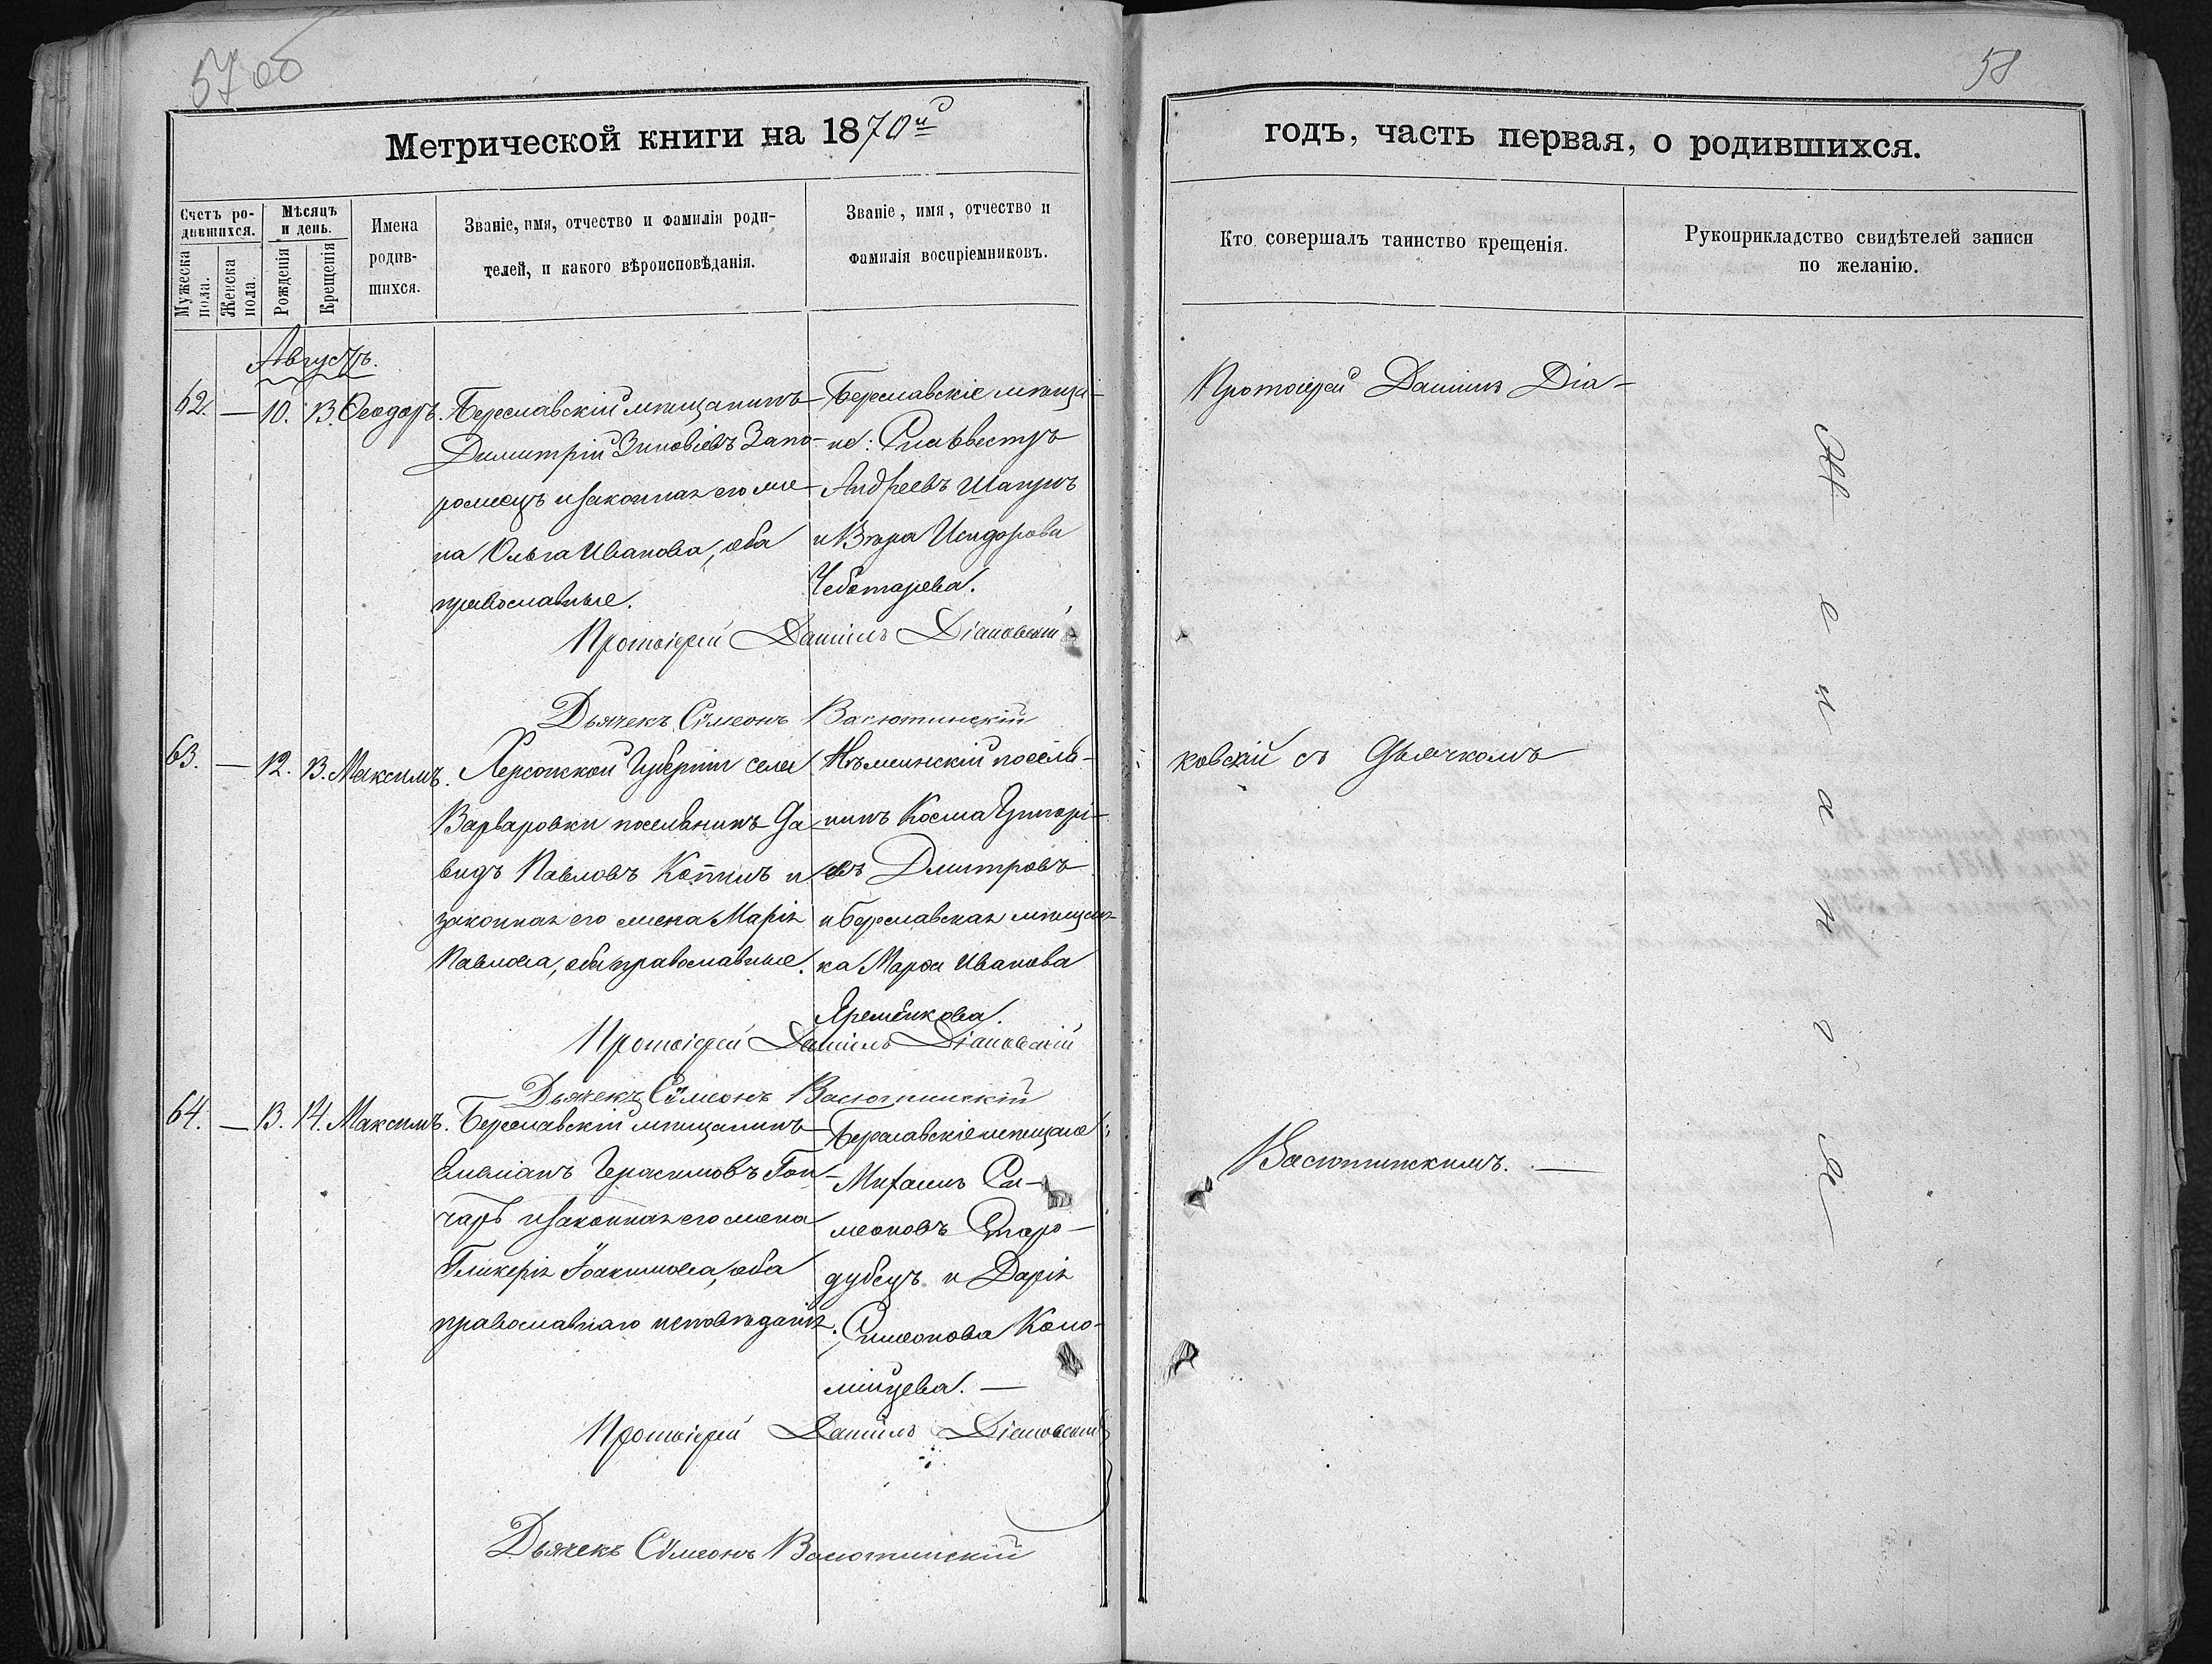 57 об
58
Метрической книги на 1870й
годъ, часть первая, о родившихся.
Счетъ ро-
дившихся.
Мужеска пола.
Женска пола.
Мѣсяцъ
и день.
Рожденія
Крещенія
Имена
родив-
шихся.
Званіе, имя, отчество и фамилія роди-
телей, и какого вѣроисповѣданія.
Званіе, имя, отчество и
фамилія воспріемниковъ.
Кто совершалъ таинство крещенія.
Рукоприкладство свидѣтелей записи
по желанію.
Августъ.
62. — 10. 13. Ѳеодоръ.
Береславскій мѣщанинъ
Димитрій Зиновіевъ Запо-
рожецъ и законная его же-
на Ольга Иванова, оба
православные.
Береславскіе мѣща-
не: Сильвестръ
Андреевъ Шапувъ
и Вѣра Исидорова
Чеботарева.
Протоіерей Даніилъ Діаковскій
Дьячекъ Сѷмеонъ Васютинскій
63. — 12. 13. Максимъ.
Херсонской Губерніи села
Варваровки поселянинъ Да-
видъ Павловъ и
законная его жена Марія
Павлова, оба православные.
поселя-
нинъ Косма Григорі-
евъ Дмитровъ
и Береславская мѣщан-
ка Марѳа Иванова
Протоіерей Даніилъ Діаковскій
Дьячекъ Сѷмеонъ Васютинскій
64. — 13. 14. Максимъ.
Береславскій мѣщанинъ
Емеліанъ Герасимовъ Гон-
чаръ и законная его жена
Гликерія Іоакимова, оба
православнаго исповѣданія.
Береславскіе мѣщане:
Михаилъ Си-
меоновъ Старо-
дубецъ и Дарія
Симеонова Коло-
мійцева. —
Протоіерей Даніилъ Діаковскій
Дьячекъ Сѷмеонъ Васютинскій
Протоіерей Даніилъ Діа-
ковскій съ Дьячкомъ
Васютинскимъ. —
Не желаютъ